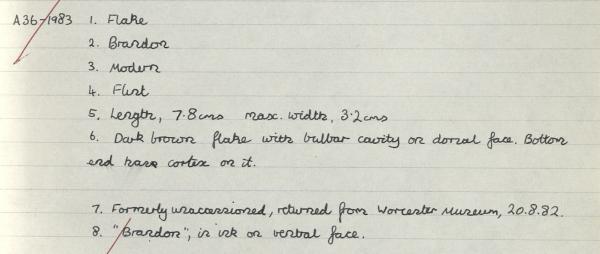 A36-1983 1. Flake
2. Brandon
3. Modern
4. Flint
5. Length, 7.8cms max. width, 3.2cms
6. Dark brown flake with bulbar cavity on dorsal face. Bottom
end has cortex on it.
7. Formerly unaccessioned, returned from Worcester Museum, 20.8.82.
8. "Brandon", in ink on ventral face.